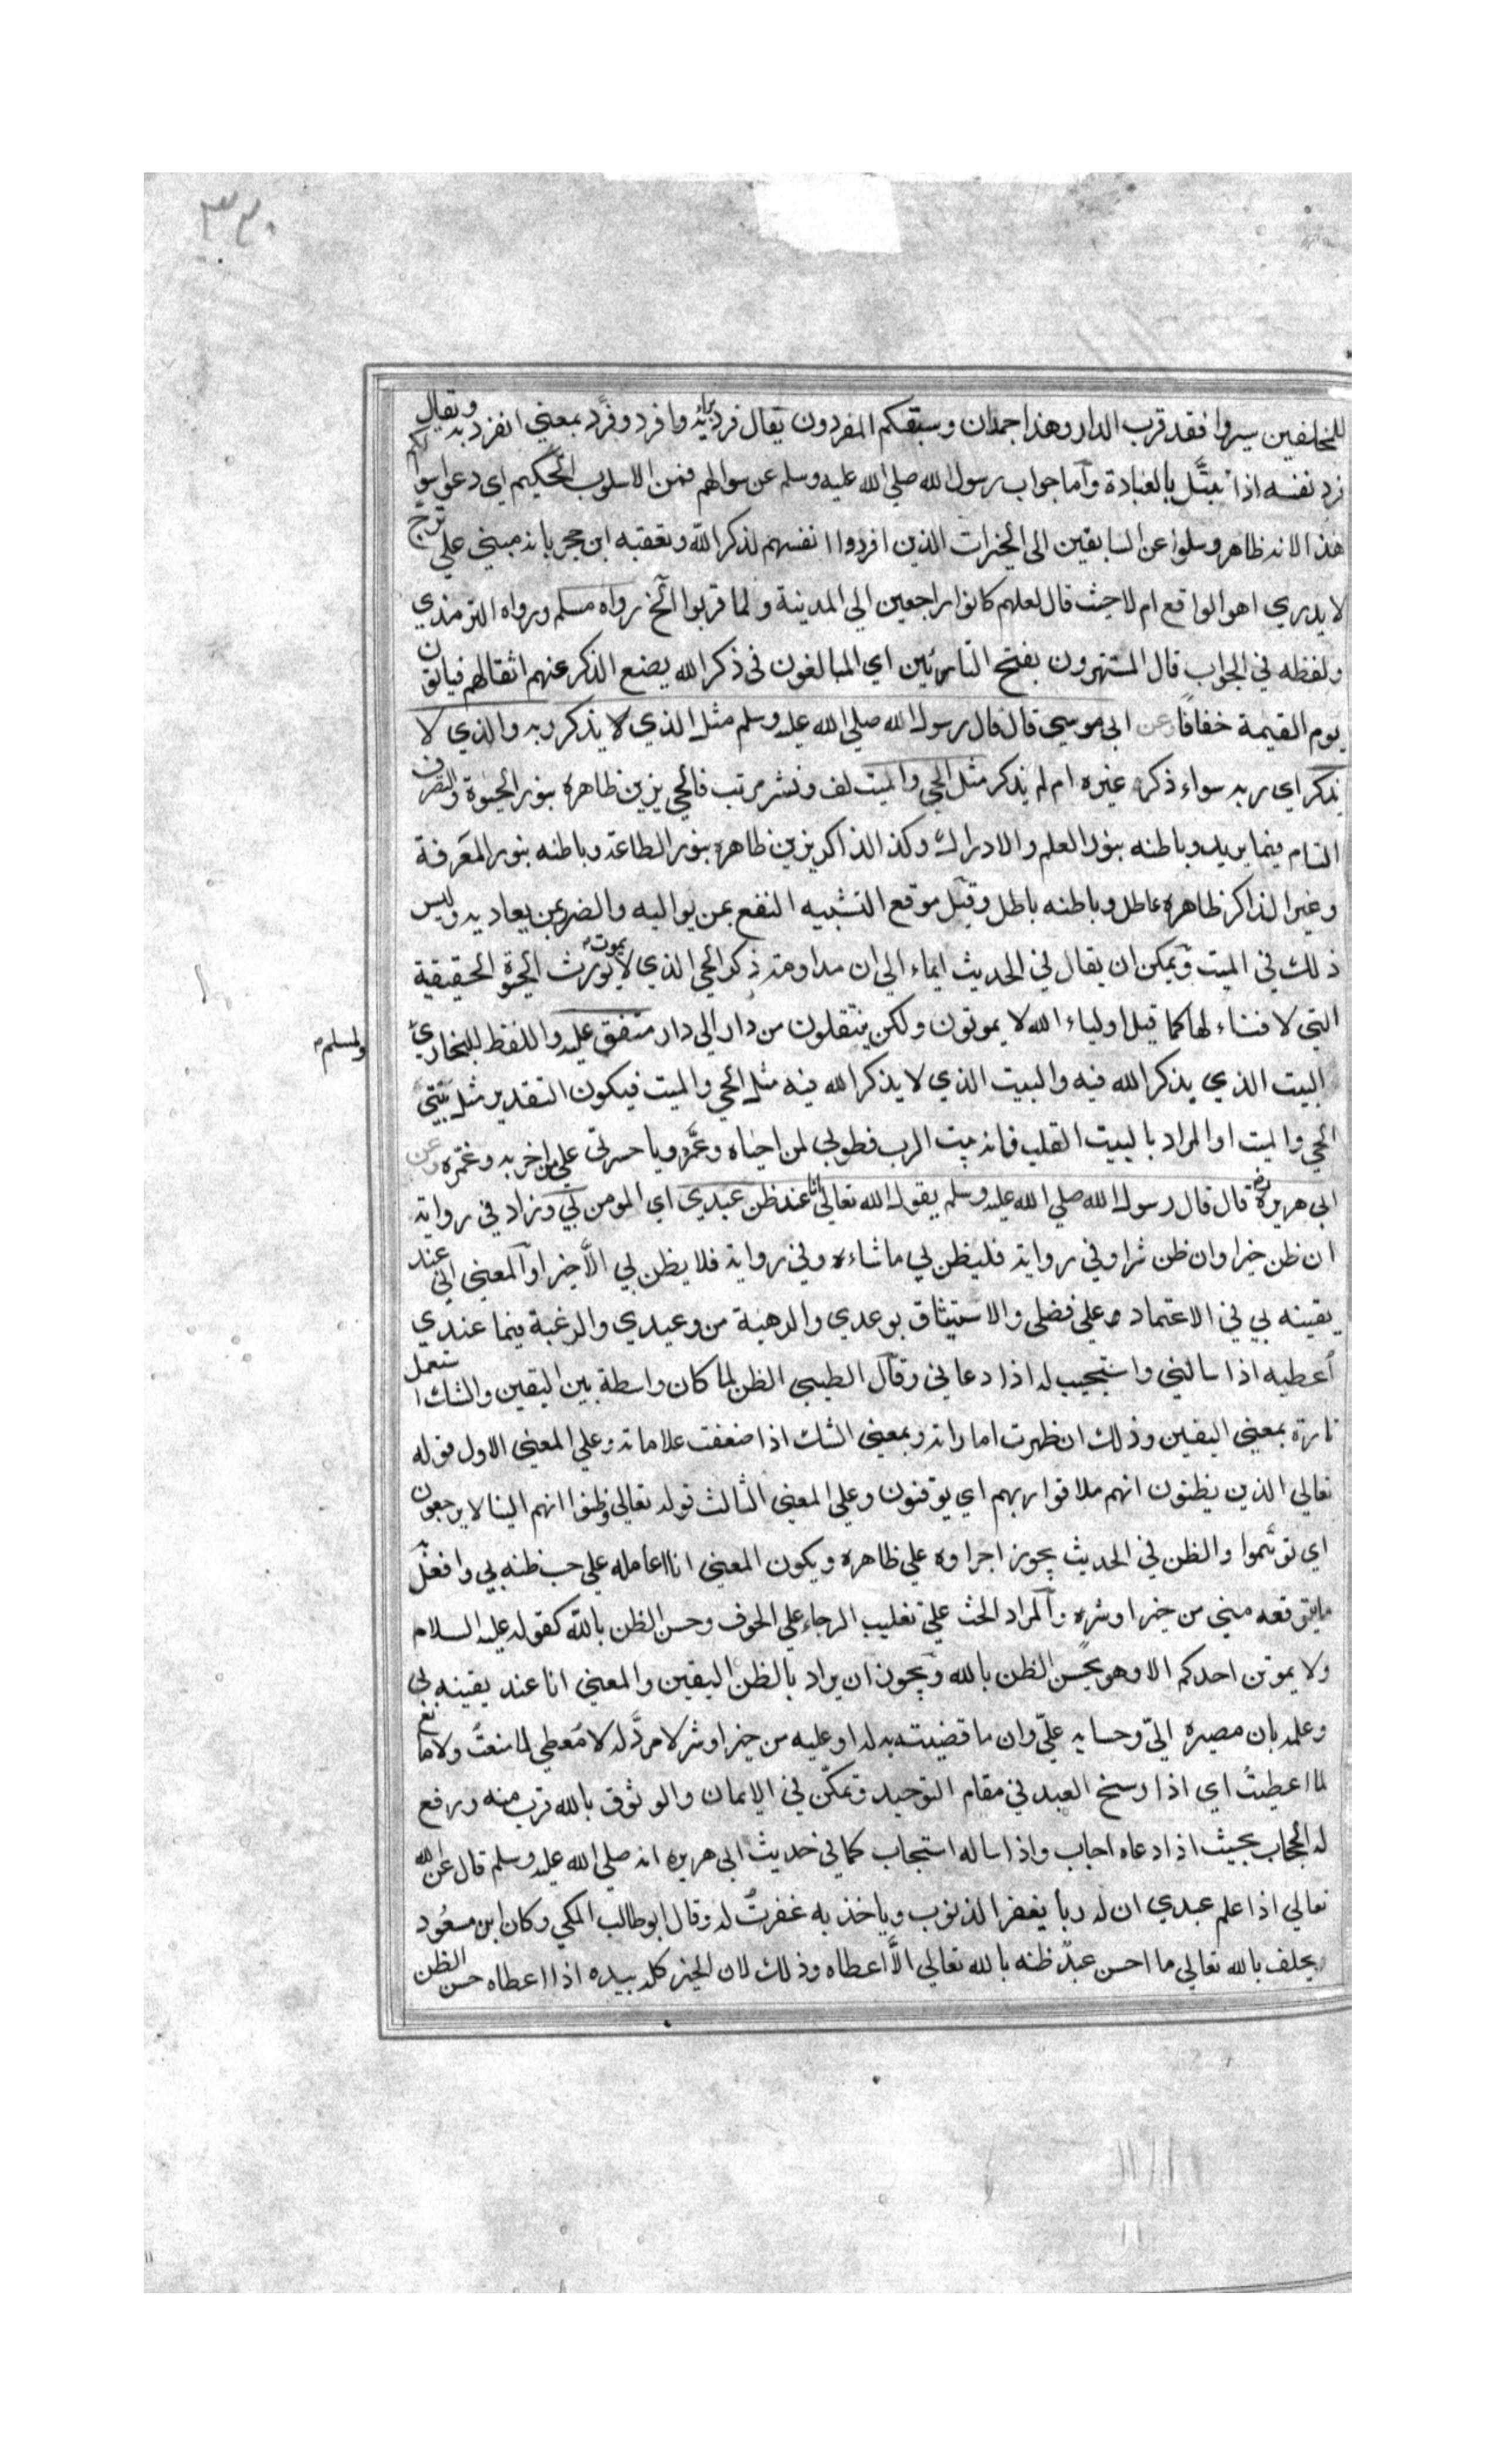 ٣٢٠
للمخلفين سيروا فقد قرب الدار وهذا جمدان وسبقكم المفردون يقال فرد برأيه وافرد وفرّد بمعنى انفرد به ويقال
فرد نفسه اذا تبتّل بالعبادة وآما جواب رسول الله صلي الله عليه وسلم عن سوالهم فمن الاسلوب الحكيم اي دعوا سوالكم
هذا لانه ظاهر وسلوا عن السابقين الى الخيرات الذين افردوا انفسهم لذكر الله وتعقبه ابن حجر بانه مبني علي ترجّ
لا يدري اهو الواقع ام لا حيث قال لعلهم كانوا راجعين الي المدينة ولما قربوا آلخ رواه مسلم ورواه الترمذي
ولفظه في الجواب قال المستهترون بفتح التائين اي المبالغون في ذكر الله يضع الذكر عنهم اثقالهم فياتون
يوم القيمة خفافا وعن ابي موسي قال قال رسول الله صلي الله عليه وسلم مثل الذي لا يذكر ربه والذي لا
يذكر اي ربه سواء ذكر غيره ام لم يذكر مثل الحي والميت لف ونشر مرتب فالحي يزين ظاهره بنور الحيوة والتصرف
التام فيما يريد وباطنه بنور العلم والادراك وكذا الذاكر يزين ظاهره بنور الطاعة وباطنه بنور المعرفة
وغير الذاكر ظاهره عاطل وباطنه باطل وقيل موقع التشبيه النفع بمن يواليه والضر بمن يعاديه وليس
ذلك في الميت ويمكن ان يقال في الحديث ايماء الي ان مداومة ذكر الحي الذي لا يموت يورث الحيوة الحقيقية
التي لا فناء لها كما قيل اولياء الله لا يموتون ولكن ينتقلون من دار الي دار متفق عليه واللفظ للبخاري
ولمسلم
البيت الذي يذكر الله فيه والبيت الذي لا يذكر الله فيه مثل الحي والميت فيكون التقدير مثل بيتي
الحي والميت او المراد بالبيت القلب فانه بيت الرب فطوبي لمن احياه وعمّره ويا حسرتى علي من اخربه وغمّره وعن
ابي هريرة قال قال رسول الله صلي الله عليه وسلم يقول الله تعالي انا عند ظن عبدي اي المومن بي وزاد في رواية
ان ظن خيرا وان ظن شرا وفي رواية فليظن بي ما شاء وفي رواية فلا يظن بي الّا خيرا وآلمعني اني عند
يقينه بي في الاعتماد علي فضلي والاستيثاق بوعدي والرهبة من وعيدي والرغبة فيما عندي
اُعطيه اذا سالني واستجيب له اذا دعاني وقآل الطيبي الظن لما كان واسطة بين اليقين والشك استعمل
تارة بمعني اليقين وذلك ان ظهرت اماراته وبمعني الشك اذا ضعفت علاماته وعلي المعني الاول قوله
تعالي الذين يظنون انهم ملاقوا ربهم اي يوقنون وعلي المعني الثالث قوله تعالي وظنوا انهم الينا لا يرجعون
اي توهّموا والظن في الحديث يجوز اجراوه علي ظاهره ويكون المعني انا اعامله علي حسب ظنه بي وافعل به
ما يتوقعه مني من خير او شر وآلمراد الحث علي تغليب الرجاء علي الخوف وحسن الظن بالله كقوله عليه السلام
ولا يموتن احدكم الا وهو يحسن الظن بالله ويجوز ان يراد بالظن اليقين والمعني انا عند يقينه بي
وعلمه بان مصيره اليّ وحسابه عليّ وان ما قضيته به له او عليه من خير او شر لا مردّ له لا مُعطي لما منعتُ ولا مانع
لما اعطيتُ اي اذا رسخ العبد في مقام التوحيد وتمكّن في الايمان والوثوق بالله قرب منه ورفع
له الحجاب بحيث اذا دعاه اجاب واذا ساله استجاب كما في حديث ابي هريره انه صلي الله عليه وسلم قال عن الله
تعالي اذا علم عبدي ان له ربا يغفر الذنوب وياخذ به غفرتُ له وقال ابو طالب المكي وكان ابن مسعُود
يحلف بالله تعالي ما احسن عبدٌ ظنه بالله تعالي الّا اعطاه وذلك لان الخير كله بيده اذا اعطاه حسن الظن